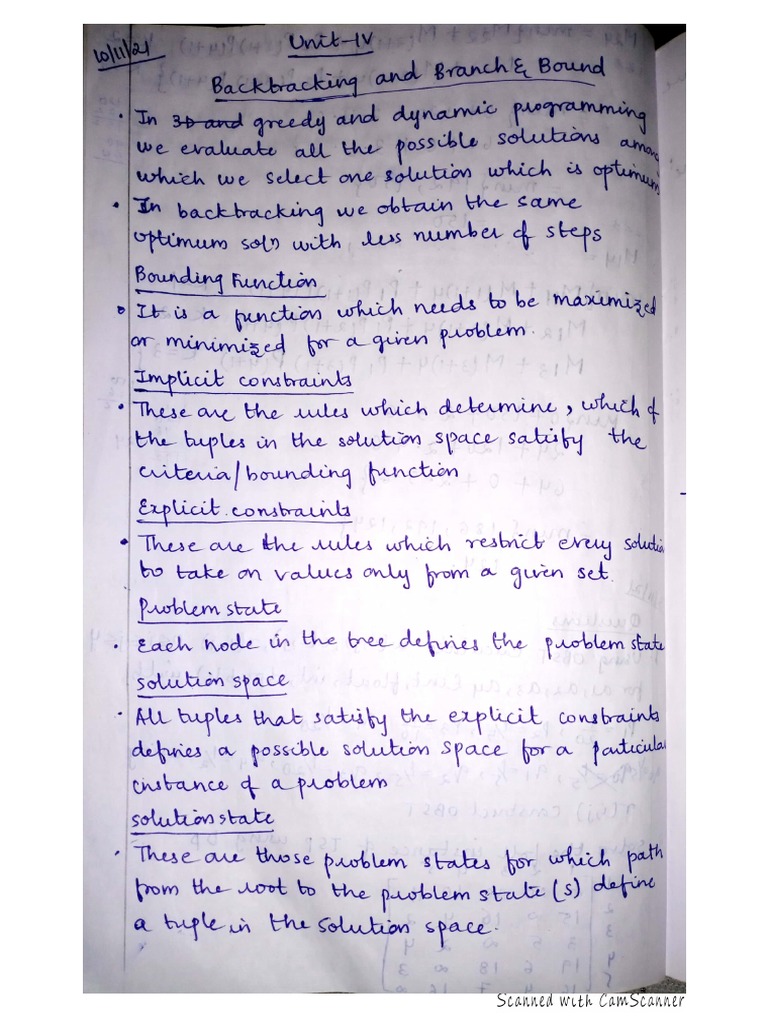 10/11/21
Unit-IV
Backtracking and Branch & Bound
• In 3D and greedy and dynamic programming
we evaluate all the possible solutions among
which we select one solution which is optimum
• In backtracking we obtain the same
optimum soln with less number of steps
Bounding Function
• It is a function which needs to be maximized
or minimized for a given problem.
Implicit constraints
• These are the rules which determine, which of
the tuples in the solution space satisfy the
criteria/bounding function
Explicit constraints
• These are the rules which restrict every solution
to take on values only from a given set.
Problem state
• Each node in the tree defines the problem state
solution space
• All tuples that satisfy the explicit constraints
defines a possible solution space for a particular
instance of a problem
solution state
• These are those problem states for which path
from the root to the problem state (s) define
a tuple in the solution space.
Scanned with CamScanner